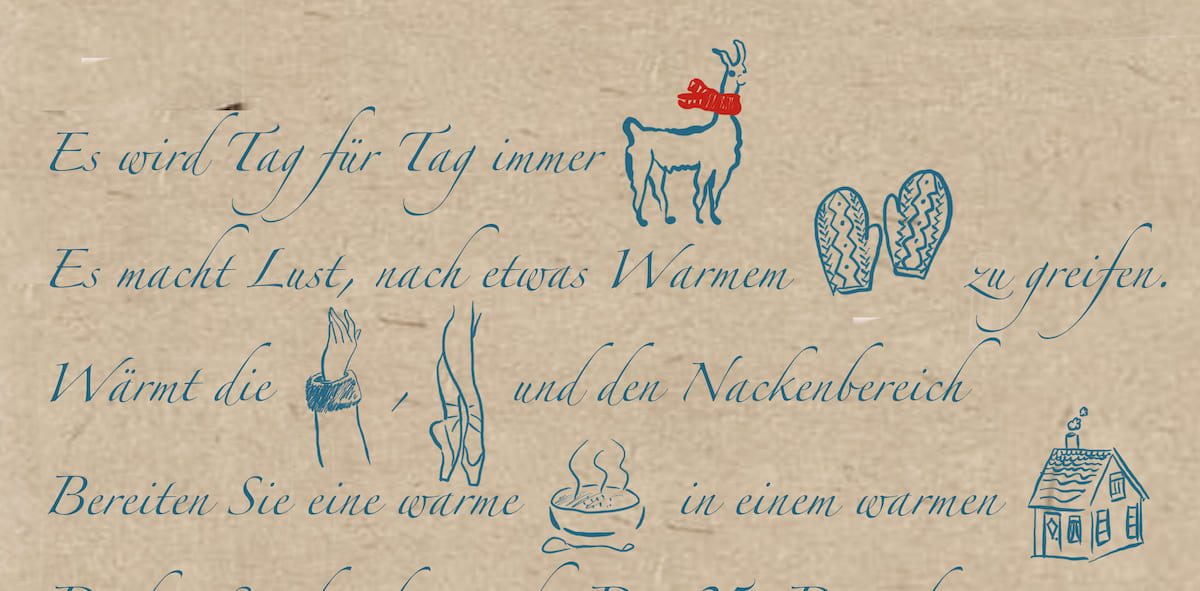 Es wird Tag für Tag immer
Es macht Lust, nach etwas Warmem zu greifen.
Wärmt die , und den Nackenbereich
Bereiten Sie eine warme in einem warmen